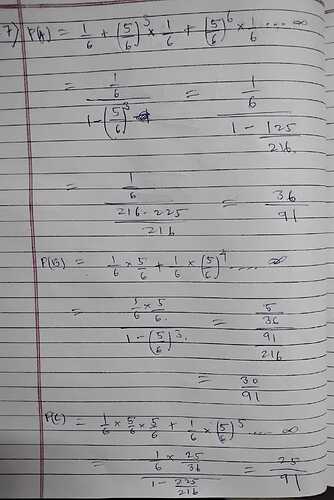 7) P(A) = 1/6 + (5/6)^3 × 1/6 + (5/6)^6 × 1/6 ..... ∞
= (1/6)/(1-(5/6)^3) = (1/6)/(1 - 125/216)
= (1/6)/((216-225)/216) = 36/91
P(B) = 1/6 × 5/6 + 1/6 × (5/6)^4 ...... ∞
= (1/6 × 5/6)/(1-(5/6)^3) = (5/36)/(91/216)
= 30/91
P(C) = 1/6 × 5/6 × 5/6 + 1/6 × (5/6)^5 ..... ∞
= (1/6 × 25/36)/(1 - 225/216) = 25/91